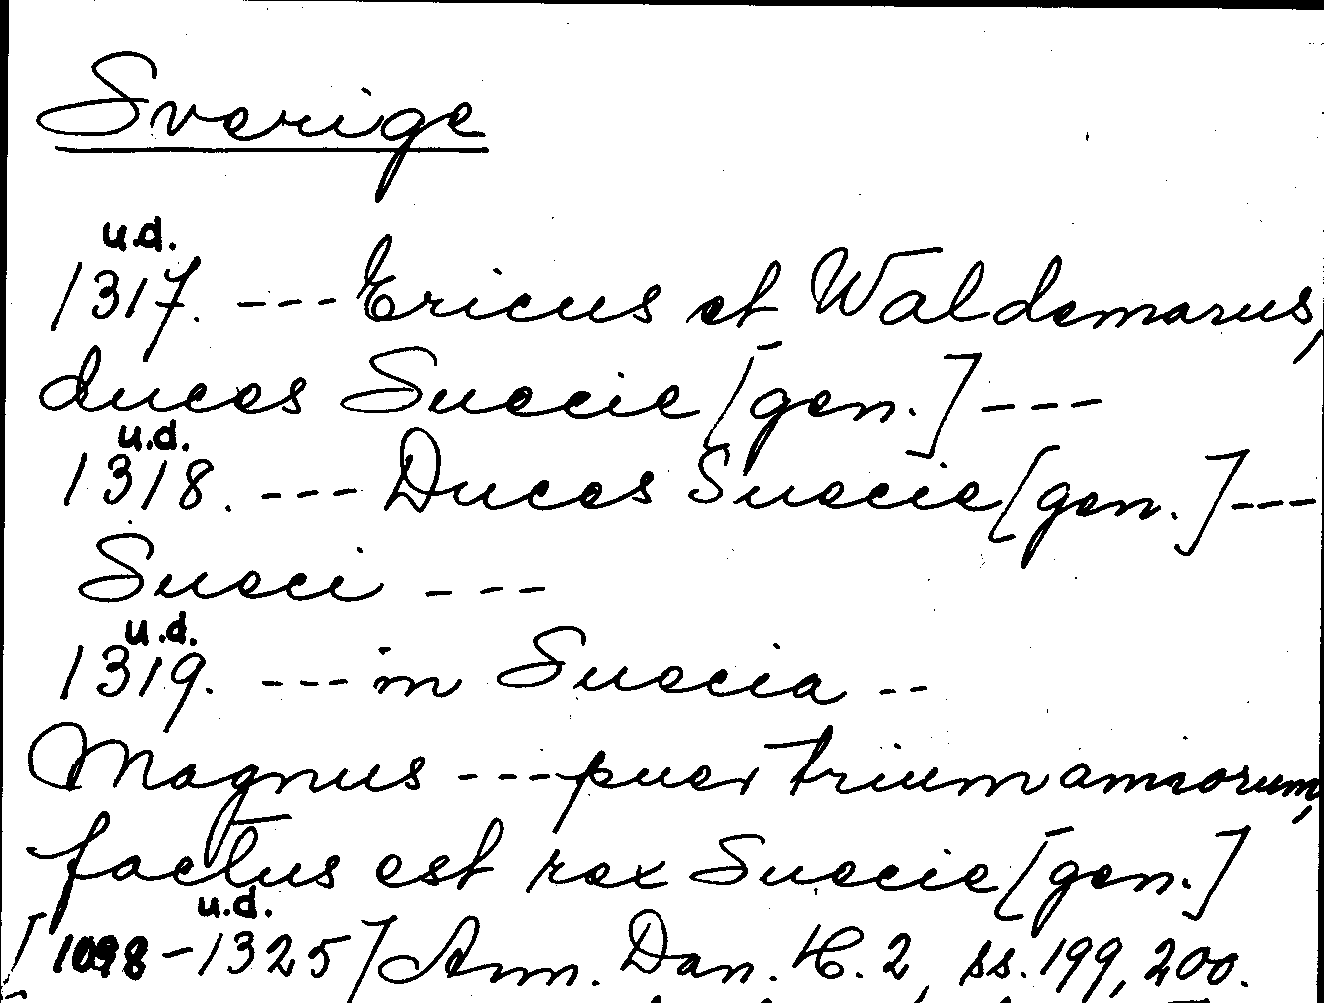 Sverige
u.d.
1317. --- Ericus et Waldemarus,
duces Suecie [gen.] ---
u.d.
1318. --- Duces Suecie [gen.] ---
Sueci ---
u.d.
1319. --- in Suecia --
Magnus --- puer trium annorum,
factus est rex Suecie [gen.]
u.d.
[1098-1325] Ann. Dan. H. 2, ss. 199, 200.